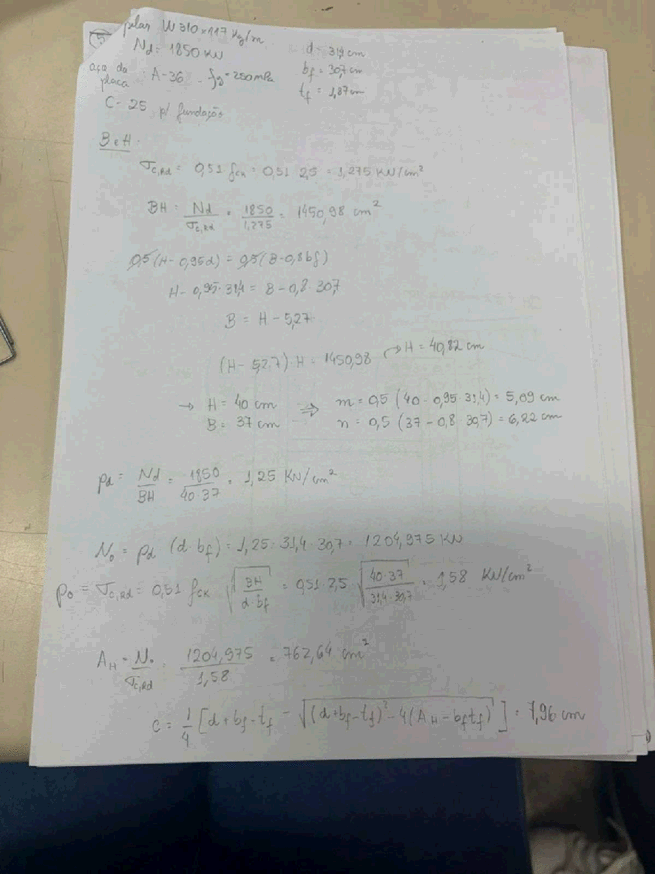 pilar W310×117 kg/m
Nd = 1850 KN
d = 31,4 cm
bf = 30,7 cm
tf = 1,87 cm
aço da placa A-36 - fy = 250 MPa
C-25 p/ fundação
B e H
σc,Rd = 0,51 fck = 0,51 · 2,5 = 1,275 KN/cm²
BH = Nd/σc,Rd = 1850/1,275 = 1450,98 cm²
0,5(H-0,95d) = 0,5(B-0,8bf)
H - 0,95·31,4 = B - 0,8·30,7
B = H - 5,27
(H - 5,27)·H = 1450,98 → H = 40,82 cm
→ H = 40 cm ⇒ m = 0,5 (40 - 0,95 31,4) = 5,09 cm
B = 37 cm n = 0,5 (37 - 0,8 30,7) = 6,22 cm
pd = Nd/BH = 1850/40·37 = 1,25 KN/cm²
N₀ = pd (d·bf) = 1,25·31,4·30,7 = 1204,975 KN
p₀ = σc,Rd = 0,51 fck √(BH/d·bf) = 0,51 2,5 √(40·37/31,4·30,7) = 1,58 KN/cm²
AH = N₀/σc,Rd = 1204,975/1,58 = 762,64 cm²
c = 1/4 [d + bf - tf - √((d+bf-tf)² - 4(AH - bf tf))] = 7,96 cm